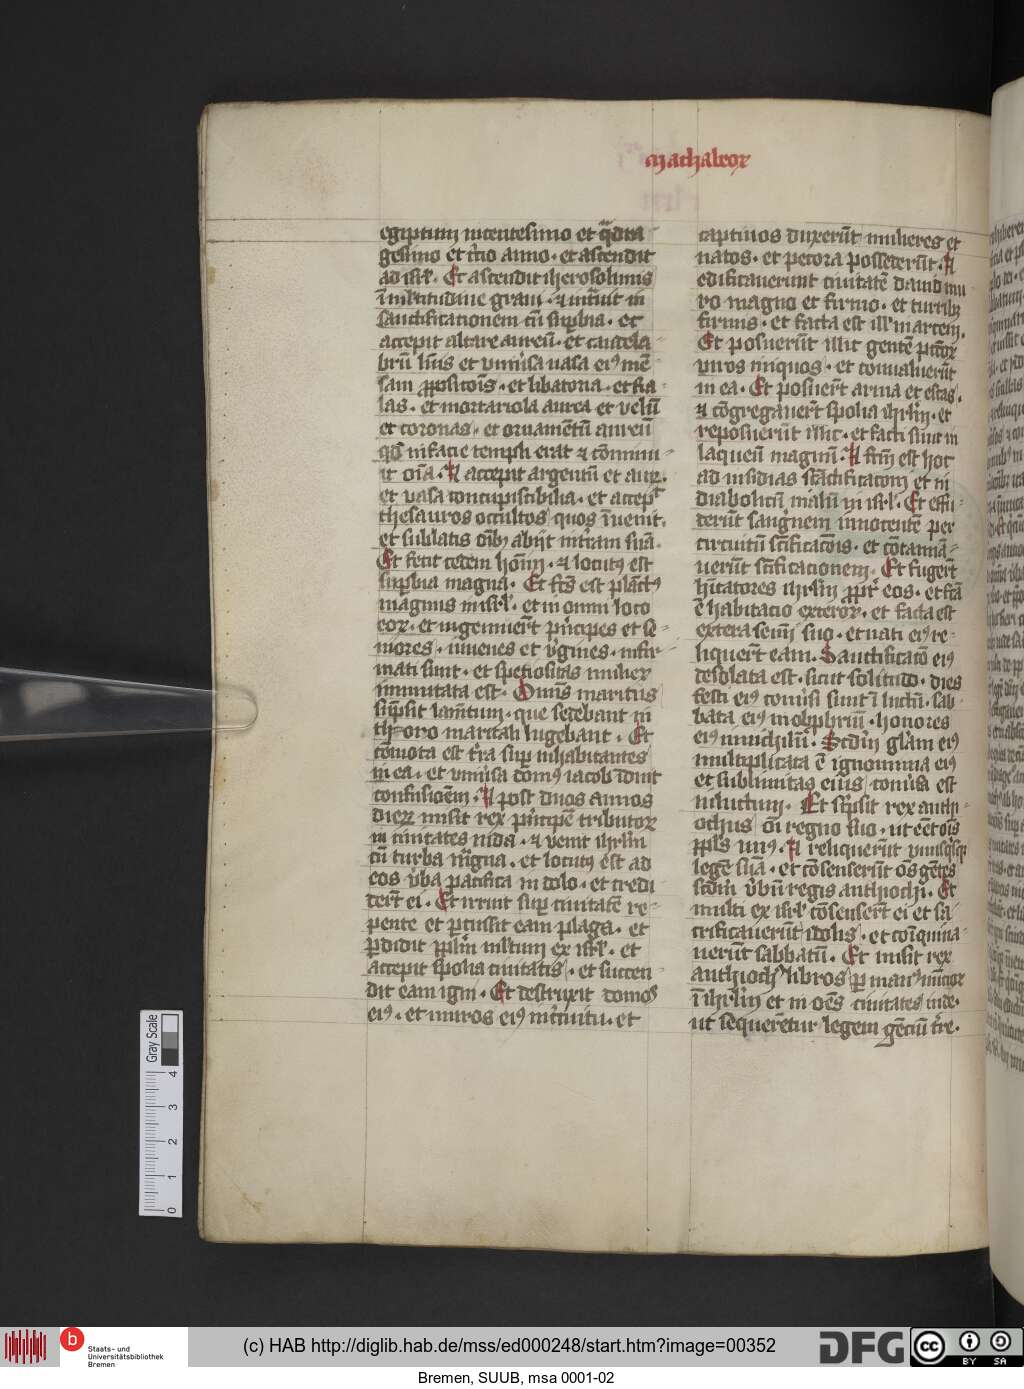 machabeoꝝ
egiptum in centesimo et q̃dra
gesimo et tcio anno · et ascendit
ad isrl̃ · Et ascendit iherosolimis
ĩ multitudine graui · ⁊ intuit in
sanctificationem cũ supbia · et
accepit altare aureũ · et candela
brũ luis et vniũsa uasa eiꝰ mẽ
sam ꝓpositois · et libatoria · et fia
las · et mortariola aurea et velũ
et coronas · et ornamẽtũ aureũ
qđ in facie templi erat ⁊ cõminu
it oĩa · Et accepit argentũ et auꝝ ·
et uasa concupiscibilia · et accep̃
thesauros occultos quos ĩuenit ·
et sublatis oĩbꝫ abijt in t̃ram suã ·
Et fecit cedem hoĩm · ⁊ locutꝰ est
supbia magna · Et fc̃s est plãctꝰ
magnus in isrl̃ · et in omni loco
eoꝝ · et ingemuer̃t pncipes et se
niores · iuuenes et v̾gines · infir
mati sunt · et speciositas mulieꝝ
inmutata est · Omnis maritus
sũpsit lam̃tum · que sedebant in
thoro maritali lugebant · Et
cõmota est t̃ra sup inhabitantes
in ea · et vniũsa domꝰ iacob ĩduit
confusioẽm · Et post duos annos
dieꝝ misit rex pncipẽ tributoꝝ
in ciuitates iuda · ⁊ venit ihrlm̃
cũ turba magna · et locutꝰ est ad
eos v̾ba pacifica in dolo · et credi
der̃t ei · Et irruit sup ciuitatẽ re
pente et pcussit eam plaga · et
pdidit ppłm multum ex isrl̃ · et
accepit spolia ciuitatis · et succen
dit eam igni · Et destruxit domos
eiꝰ · et muros eiꝰ in circuitu · et
captiuos duxerũt mulieres et
natos · et pecora possederũt · Et
edificauerunt ciuitatẽ dauid mu
ro magno et firmo · et turribꝫ
firmis · et facta est ill̃ in arcem ·
Et posuerũt illic gentẽ pcc̃oꝝ
viros iniquos · et conualuerũt
in ea · Et posuer̃t arma et escas ·
⁊ cõgregauer̃t spolia ihrlm̃ · et
reposuerũt illic · et facti sunt in
laqueũ magnũ · Et fc̃m est hoc
ad insidias sc̃ificatoni et in
diabolicũ malũ in isrl̃ · Et effu
derũt sangnem innocentẽ per
circuitũ sc̃ificatõis · et cõtamina
uerũt sc̃ificationem · Et fuger̃t
hitatores ihrlm̃ ꝓpt̃ eos · et fc̃a
ẽ habitacio exteroꝝ · et facta est
extera semini suo · et nati eiꝰ re
liquer̃t eam · Sanctificatõ eiꝰ
desolata est · sicut solitudo · dies
festi eiꝰ conũsi sunt ĩ luctũ · sab
bata eiꝰ in obpbriũ · honores
eiꝰ in nichilũ · Scd̃m gl̃am eiꝰ
multiplicata ẽ ignominia eiꝰ
et sublimitas eiũs conũsa est
in luctum · Et scpsit rex anthi
ochus oĩ regno suo · ut eẽt oĩs
ppl̃s unꝰ · Et reliquerũt vnusqsq
legẽ suã · et cõsenserũt oẽs gẽtes
scdm̃ v̾bũ regis anthiochi · Et
multi ex isrl̃ cõsenser̃t ei et sa
crificauerũt idolis · et coĩquina
uerũt sabbatũ · Et misit rex
anthiochꝰ libros p manꝰ nũcioꝝ
ĩ ihrlm̃ et in oẽs ciuitates iude ·
ut sequerẽtur legem gẽciũ tr̃e ·
Gray Scale
4
3
2
1
0
b
Staats- und
Universitätsbibliothek
Bremen
(c) HAB http://diglib.hab.de/mss/ed000248/start.htm?image=00352
DFG
cc
BY SA
Bremen, SUUB, msa 0001-02